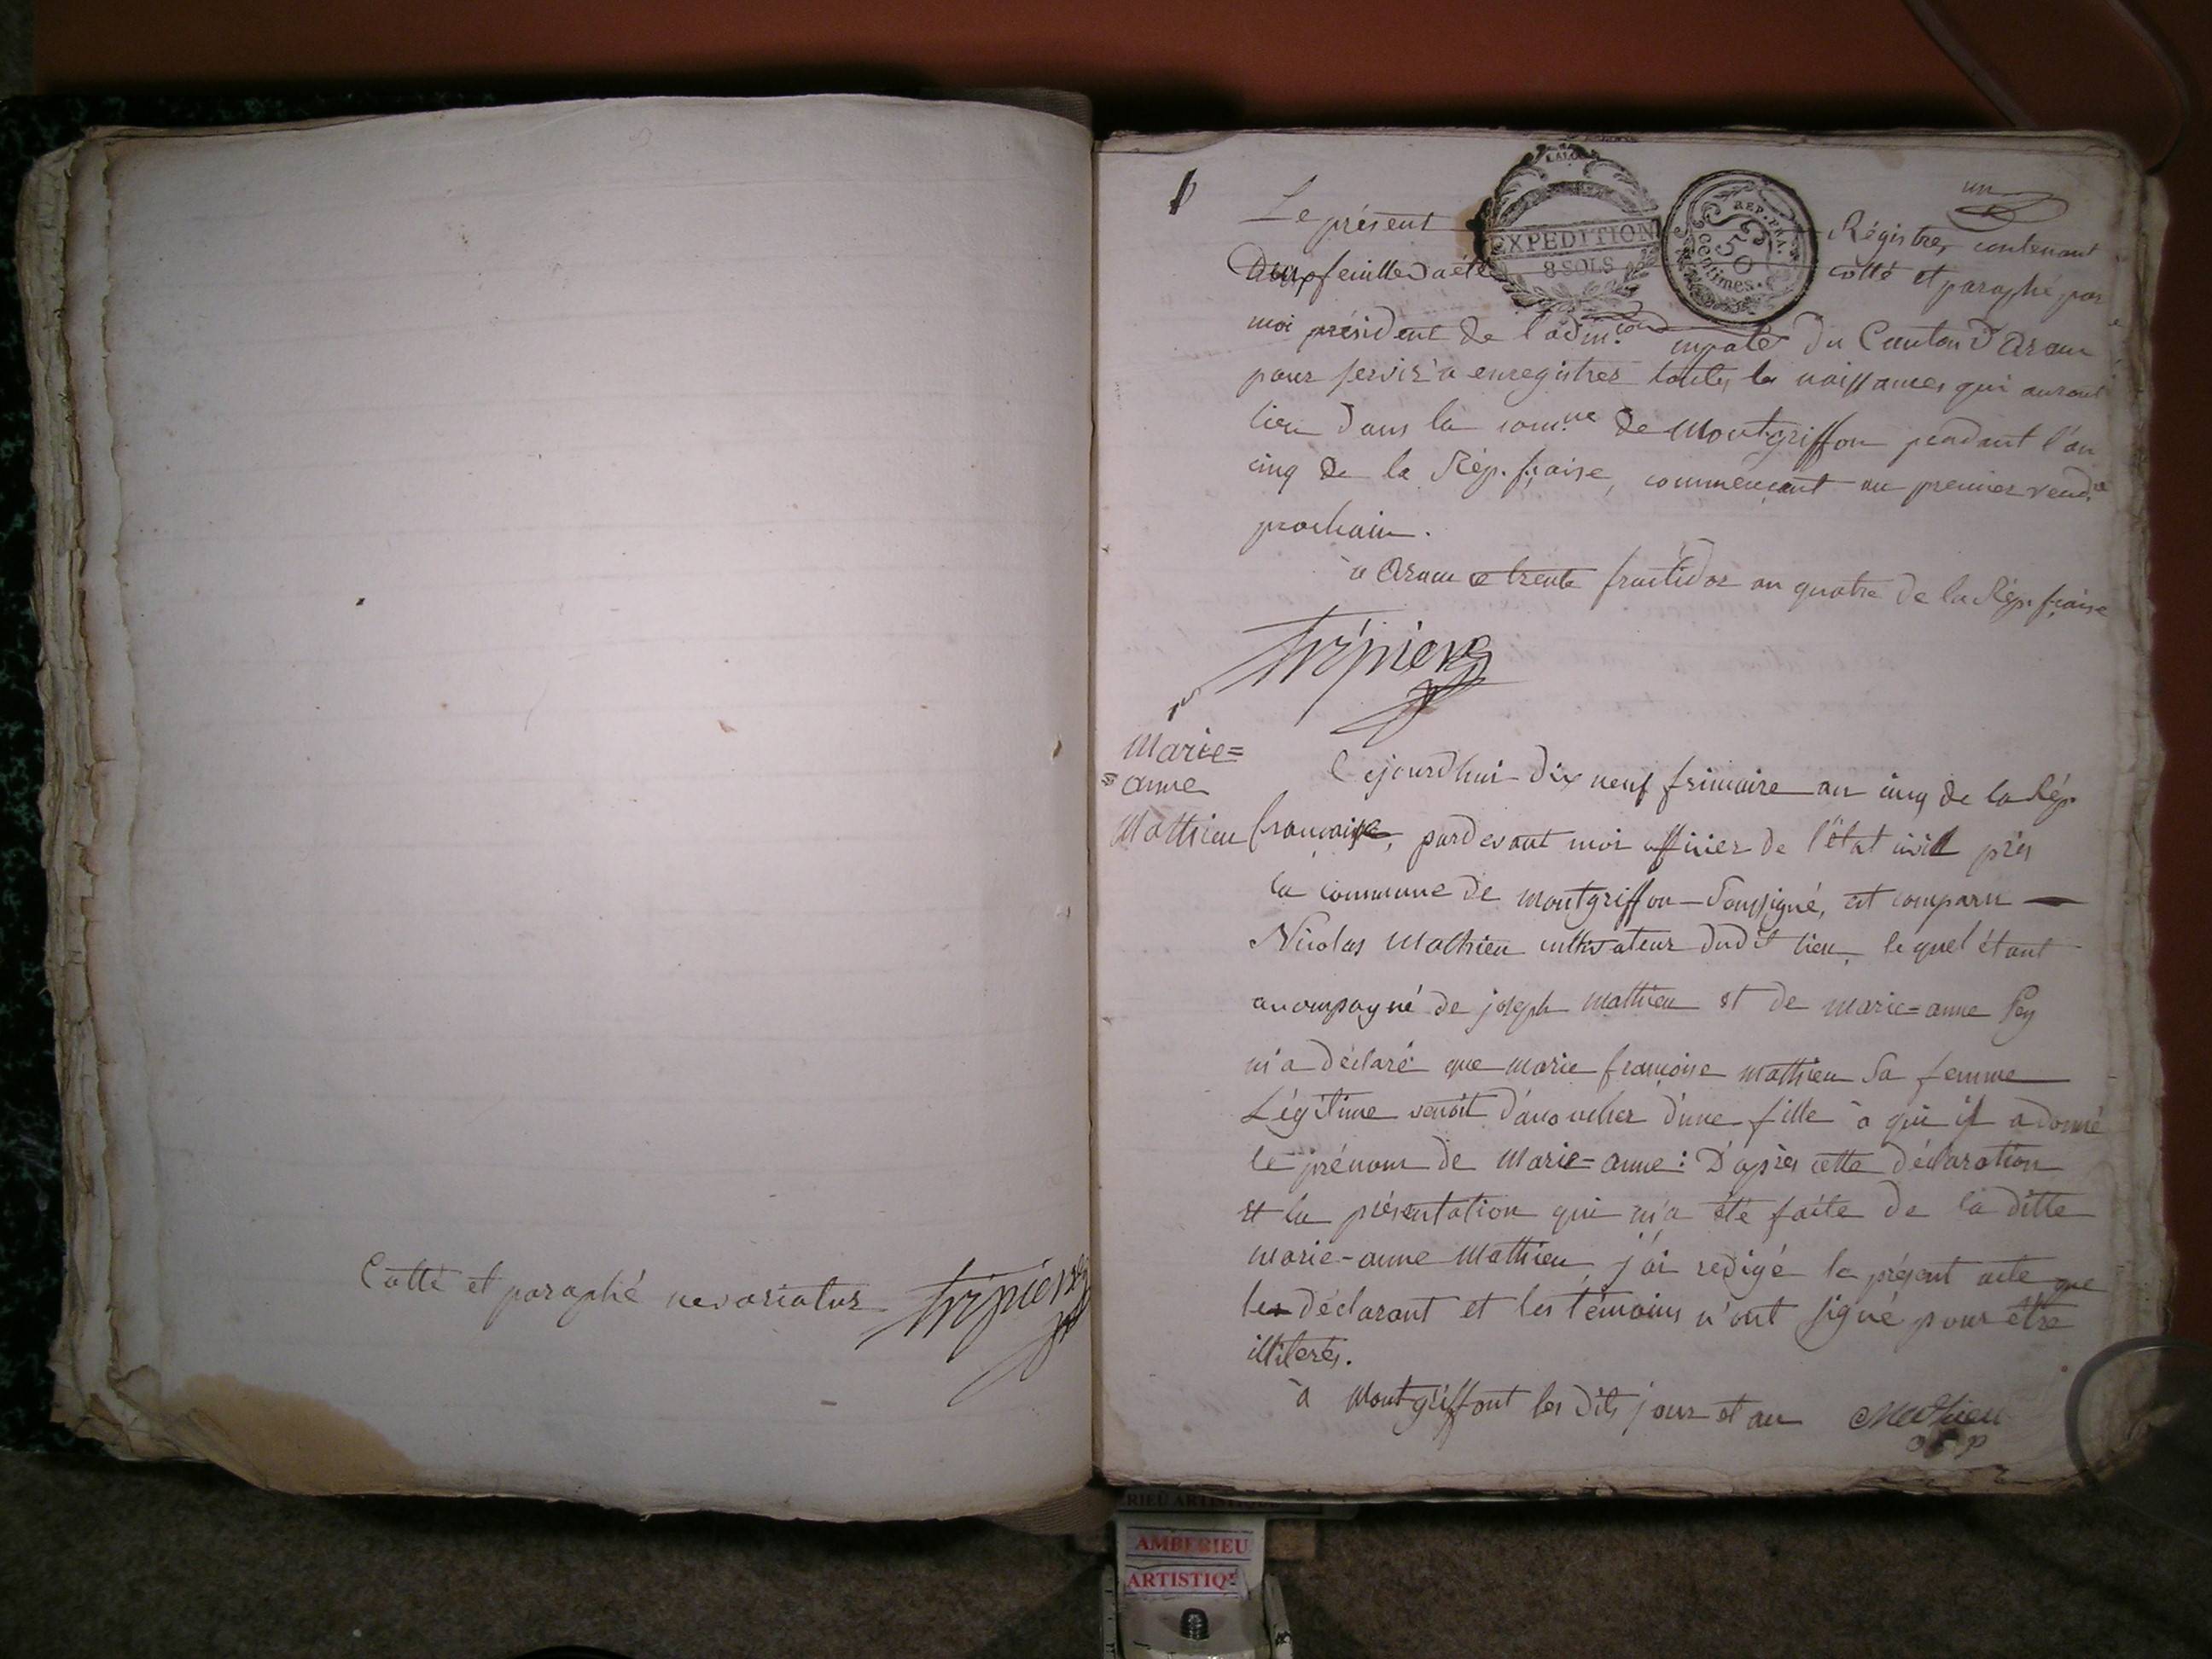 Cotté et paraphé nevariatur Tripier
un
Le present Régistre, contenant
EXPEDITION
8 SOLS
REP. FRA.
50
centimes.
Deux feuilles a été cotté et paraphé par
moi président de l'adm.on mpale du Canton d'Aranc
pour servir à enregistrer toutes les naissances qui auront
lieu dans la com.ne de Montgriffon pendant l'an
cinq de la Rép. f.çaise, commençant au premier vend.re
prochain.
à Aranc ce trente fructidor an quatre de la Rép. f.çaise
Tripier
Marie=
=anne
Mathieu
Cejourdhui dix neuf frimaire an cinq de la Rép.
francaise, pardevant moi officier de l'état civil près
la commune de montgriffon Soussigné, est comparu
Nicolas Mathieu cultivateur dudit lieu, lequel étant
acompagné de joseph mathieu et de marie=anne Pey
m'a déclaré que marie françoise mathieu Sa femme
Légitime venoit d'acoucher d'une fille à qui il a donné
le prénom de Marie=anne: D'après cette déclaration
et la présentation qui m'a été faite de la ditte
marie-anne Mathieu j'ai redigé le présent acte que
le déclarant et les témoins n'ont signé pour être
illiterés.
à Montgriffont les dits jour et an Mathieu
AMBERIEU
ARTISTIQUE